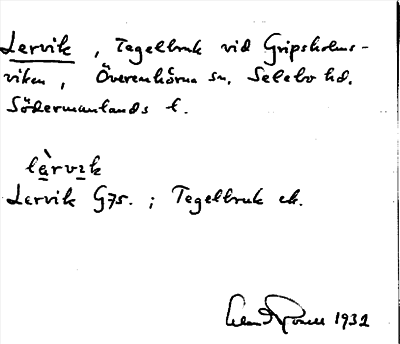 Lervik, Tegelbruk vid Gripsholms-
viken, Överenhörna sn, Selebo hd.
Södermanlands l.
lèrvɪk
Lervik G75.; Tegelbruk ek.
1932